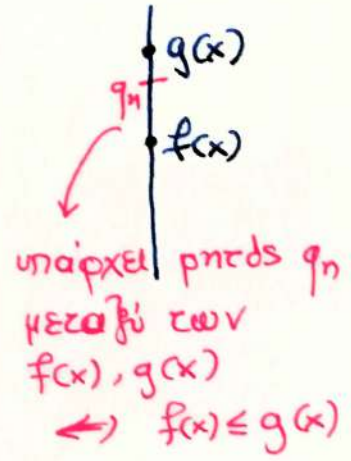 g(x)
qₙ
f(x)
υπάρχει ρητός qₙ
μεταξύ των
f(x), g(x)
⟷ f(x) ≤ g(x)